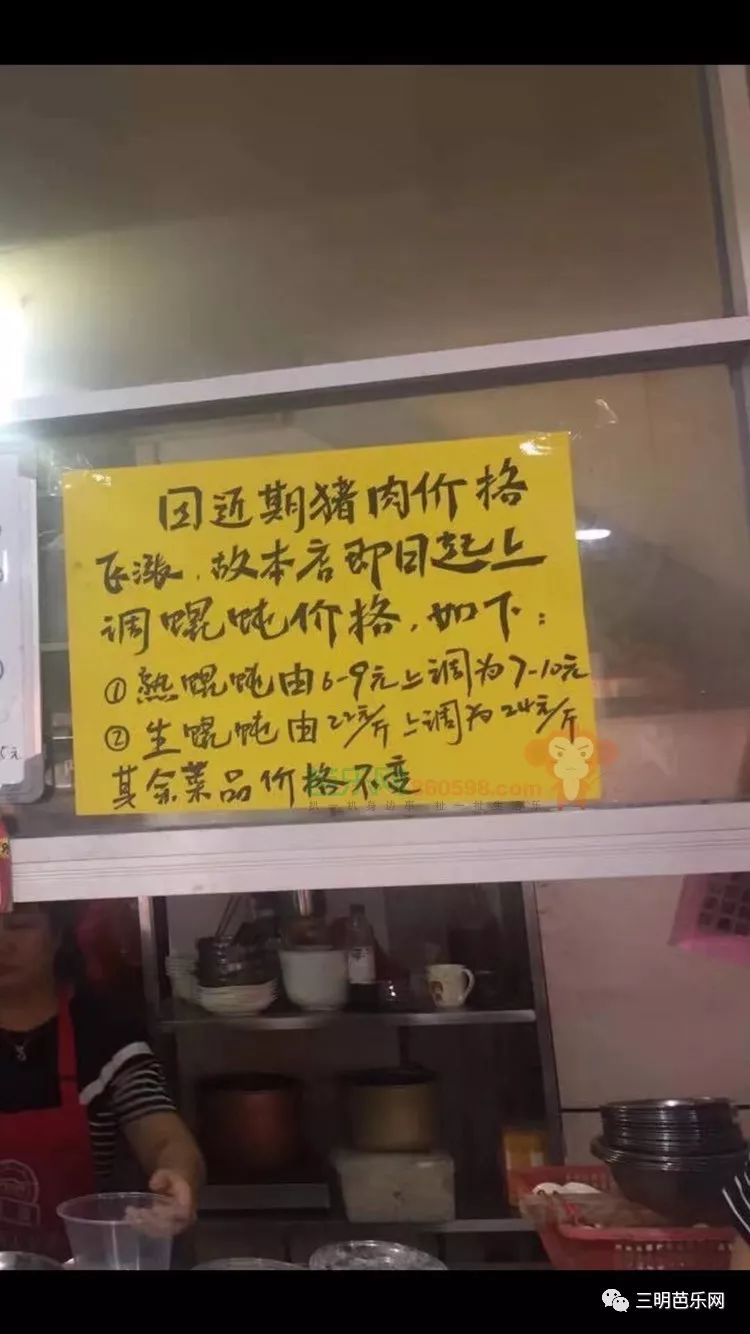 因近期猪肉价格
飞涨，故本店即日起上
调馄饨价格，如下：
①热馄饨由6-9元上调为7-10元
②生馄饨由22元/斤上调为24元/斤
其余菜品价格不变
360598.com
三明芭乐网